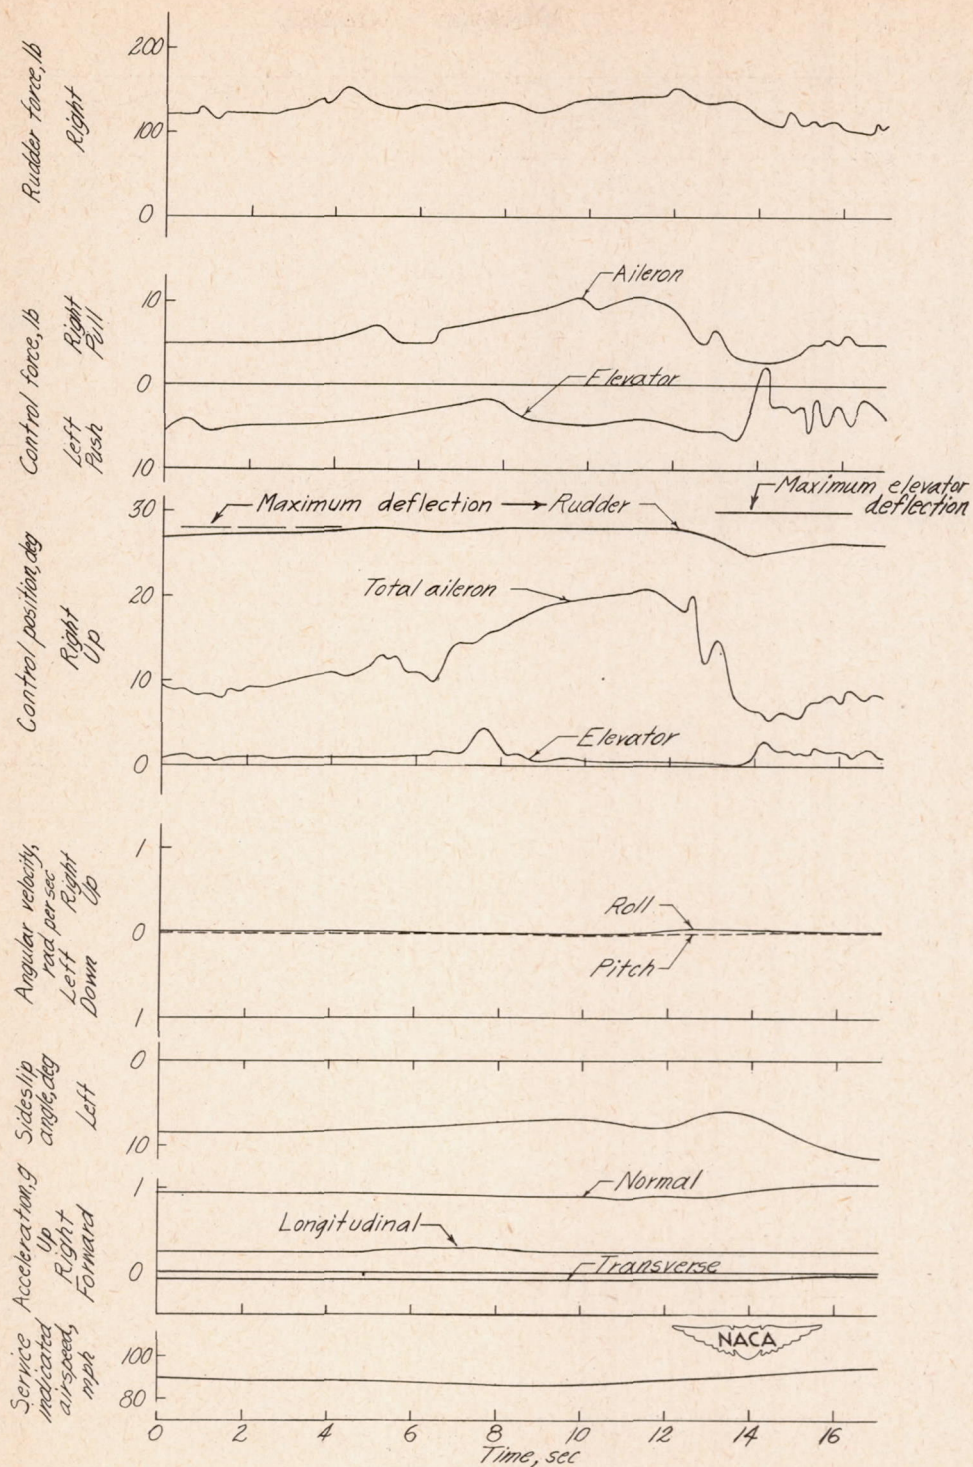 Rudder force, lb
Right
200
100
0
Control force, lb
Right
Pull
Left
Push
10
0
10
Aileron
Elevator
Control position, deg
Right
Up
30
20
10
0
Maximum deflection
Rudder
Maximum elevator
deflection
Total aileron
Elevator
Angular velocity,
rad per sec
Left Right
Down Up
1
0
1
Roll
Pitch
Sideslip
angle, deg
Left
0
10
Acceleration, g
Up
Right
Forward
1
0
Normal
Longitudinal
Transverse
Service
indicated
airspeed,
mph
100
80
NACA
0 2 4 6 8 10 12 14 16
Time, sec